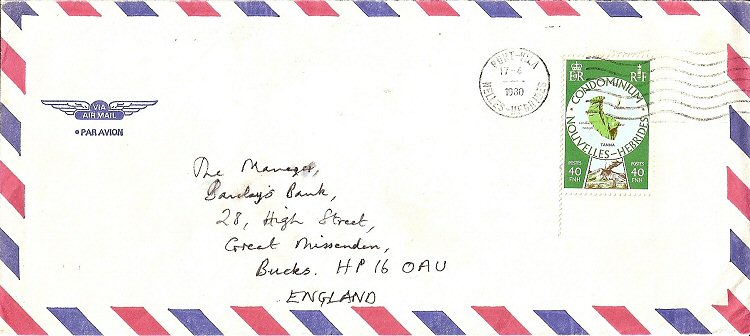 VIA
AIR MAIL
PAR AVION
PORT-VILA
17-6
1980
NELLES-HEBRIDES
E II R
RF
CONDOMINIUM
NOUVELLES-HEBRIDES
TANNA
POSTES
40
FNH
POSTES
40
FNH
The Manager,
Barclay's Bank,
28, High Street,
Great Missenden,
Bucks. HP16 0AU
ENGLAND